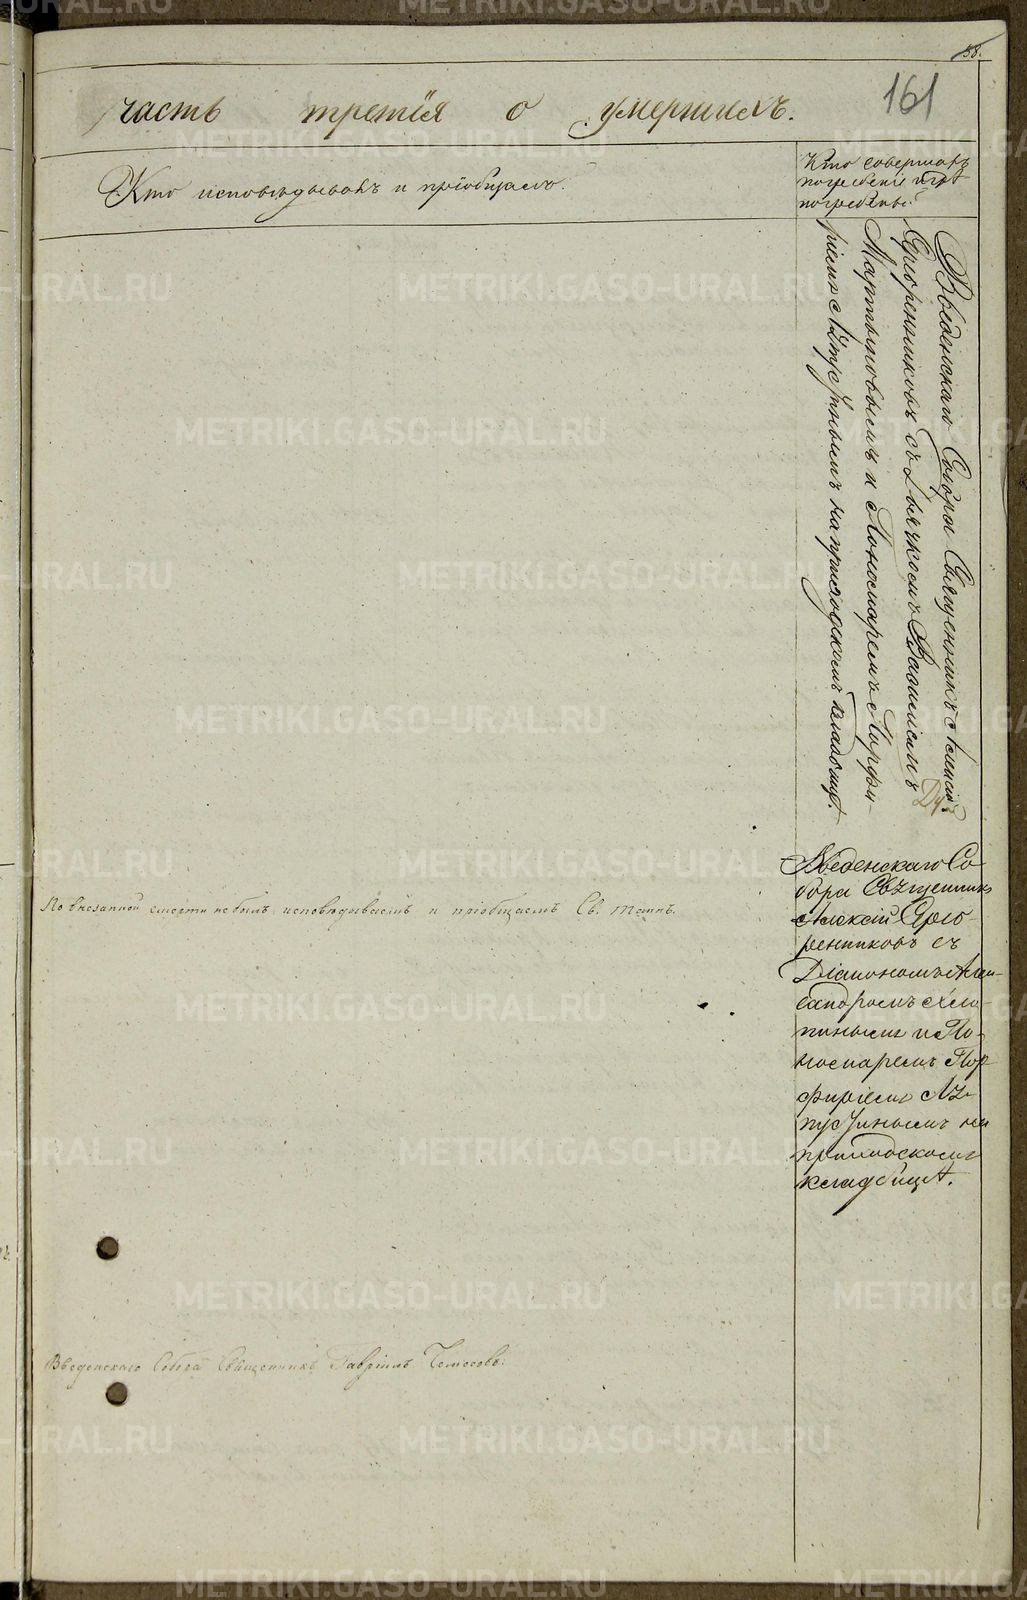 58.
161
часть третія о умершихъ.
Кто исповѣдывалъ и пріобщалъ.
Кто совершалъ
погребеніе и гдѣ
погребены.
Введенскаго Собора Священникъ Алексій
съ Дьячкомъ Василіемъ
Мартыновымъ и Пономаремъ Порфи-
ріемъ на приходскомъ кладбищѣ.
По внезапной смерти не былъ исповѣдываемъ и пріобщаемъ Св. Таинъ.
Введенскаго Со
бора Священникъ
Алексій
съ
Діакономъ Алек-
сандромъ
и По-
номаремъ Пор
фиріемъ
на
приходскомъ
кладбищѣ.
Введенскаго Собора Священникъ Гавріилъ
METRIKI.GASO-URAL.RU